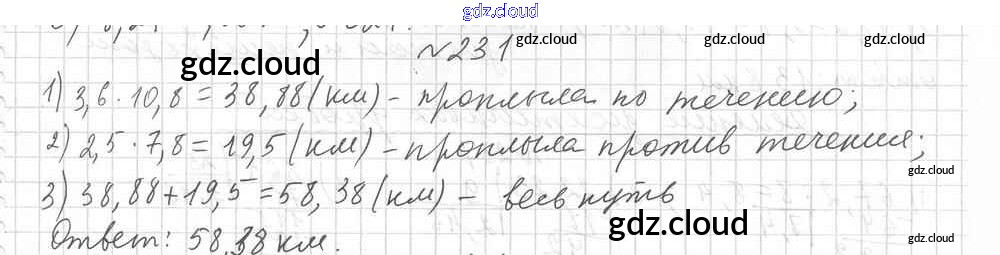 gdz.cloud
№231
gdz.cloud
gdz.cloud
gdz.cloud
1) 3,6 · 10,8 = 38,88 (км) – проплыла по течению;
2) 2,5 · 7,8 = 19,5 (км) – проплыла против течения;
gdz.cloud
3) 38,88 + 19,5 = 58,38 (км) – весь путь
gdz.cloud
gdz.cloud
Ответ: 58,38 км.
gdz.cloud